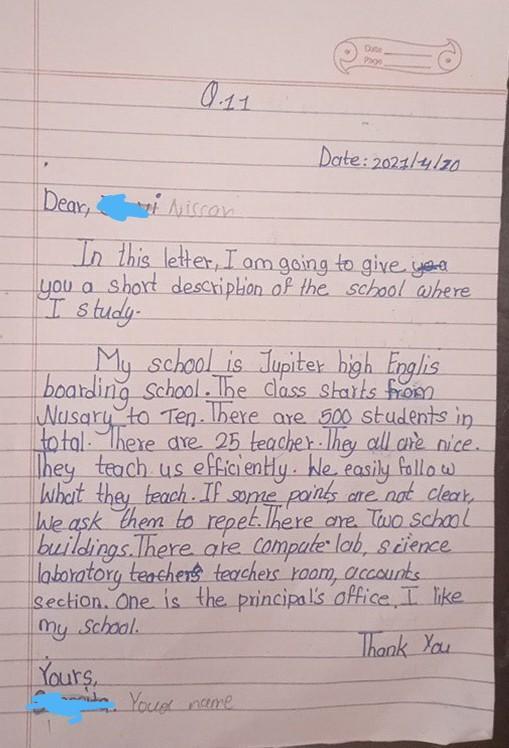 Date
Page
Q.11
Date: 2021/4/20
Dear, Nissan
In this letter, I am going to give
you a short description of the school where
I study.
My school is Jupiter high Englis
boarding school. The class starts from
Nusary to Ten. There are 500 students in
total. There are 25 teacher. They all are nice.
They teach us efficiently. We easily follow
What they teach. If some points are not clear,
We ask them to repet. There are Two school
buildings. There are compute lab, science
laboratory teachers teachers room, accounts
section. One is the principal's office. I like
my school.
Thank You
Yours,
Your name